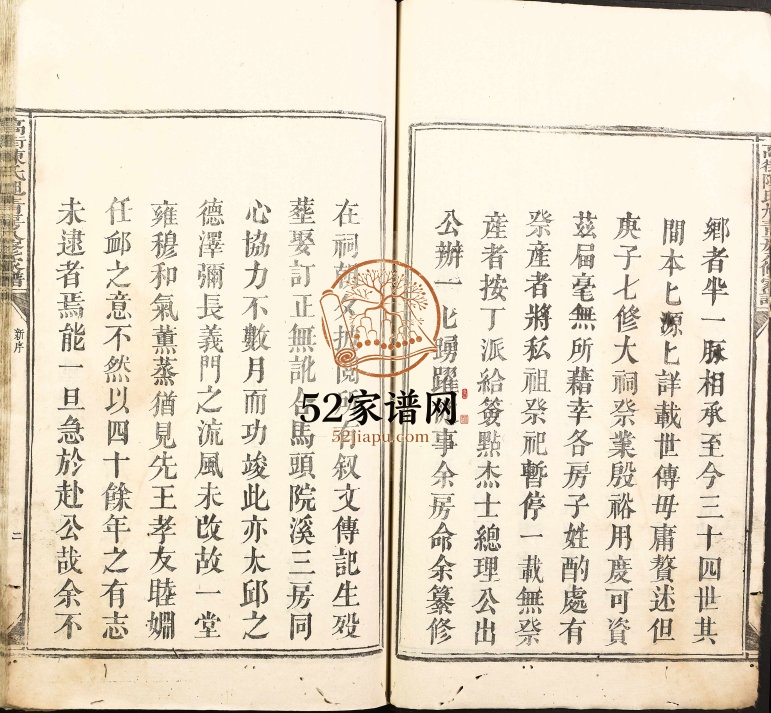 鄉者半一脈相承至今三十四世其
間本匕源匕詳載世傳毋庸贅述但
庚子七修大祠祭業殷裕用度可資
茲屆毫無所藉幸各房子姓酌處有
祭產者將私祖祭祀暫停一載無祭
產者按丁派給簽點杰士總理公出
公辦一匕踴躍事余房命余纂修
在祠閱所有叙文傳記生殁
塟娶訂正無訛馬頭院溪三房同
心協力不數月而功竣此亦太邱之
德澤彌長義門之流風未改故一堂
雍穆和氣薰蒸猶見先王孝友睦婣
任卹之意不然以四十餘年之有志
未逮者焉能一旦急於赴公哉余不
新序
二
52家谱网
52jiapu.com